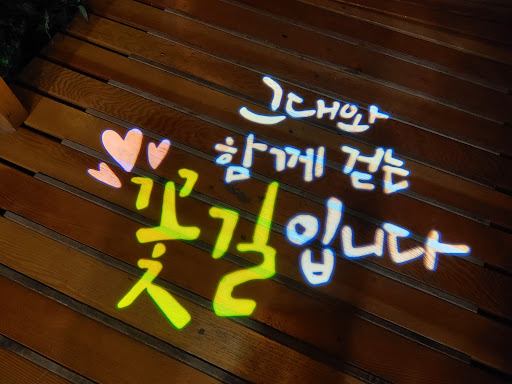 그대와
함께 걷는
꽃길입니다